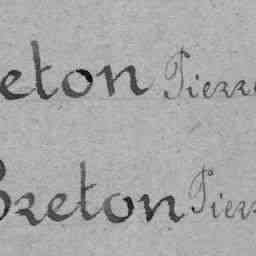 eton Pierre
Breton Pierr